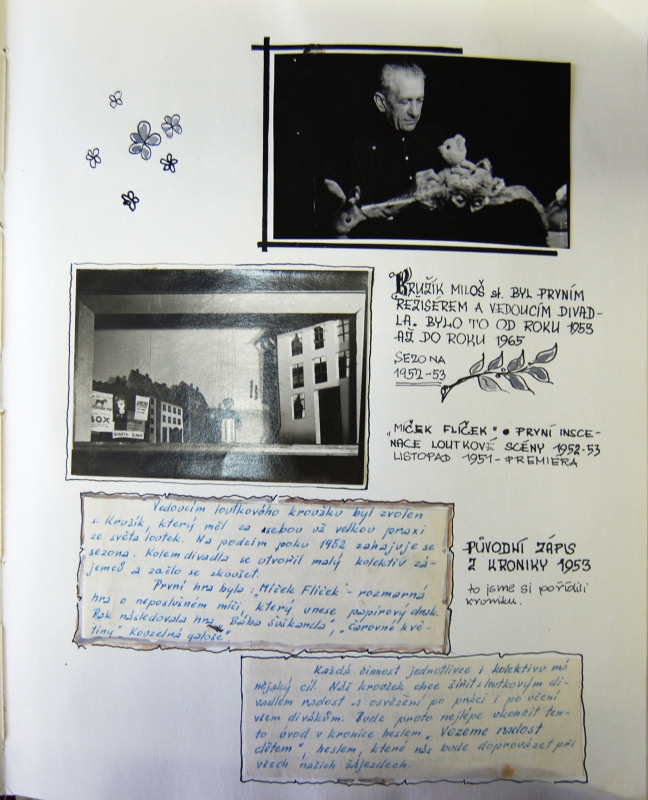 KRUŽÍK MILOŠ st. BYL PRVNÍM
REŽISÉREM A VEDOUCÍM DIVAD-
LA. BYLO TO OD ROKU 1953
AŽ DO ROKU 1965
SEZONA
1952-53
BOX
„MÍČEK FLÍČEK" • PRVNÍ INSCE-
NACE LOUTKOVÉ SCÉNY 1952-53
LISTOPAD 1951 - PREMIÉRA
Vedoucím loutkového kroužku byl zvolen
s. Kružík, který měl za sebou už velkou praxi
ze světa loutek. Na podzim roku 1952 zahajuje se
sezona. Kolem divadla se utvořil malý kolektiv zá-
jemců a začlo se zkoušet.
První hra byla „Míček Flíček"- rozmarná
hra o neposlušném míči, který unese papírový drak.
Pak následovala hra „Bába Šuškanda", „Čarovné kvě-
tiny". Kouzelná galoše"
PŮVODNÍ ZÁPIS
Z KRONIKY 1953
to jsme si pořídili
kroniku.
Každá činnost jednotlivce i kolektivu má
nějaký cíl. Náš kroužek chce šířit s loutkovým di-
vadlem radost a osvěžení po práci i po učení
všem divákům. Bude proto nejlépe ukončit ten-
to úvod v kronice heslem „Vezeme radost
dětem", heslem, které nás bude doprovázet při
všech našich zájezdech.